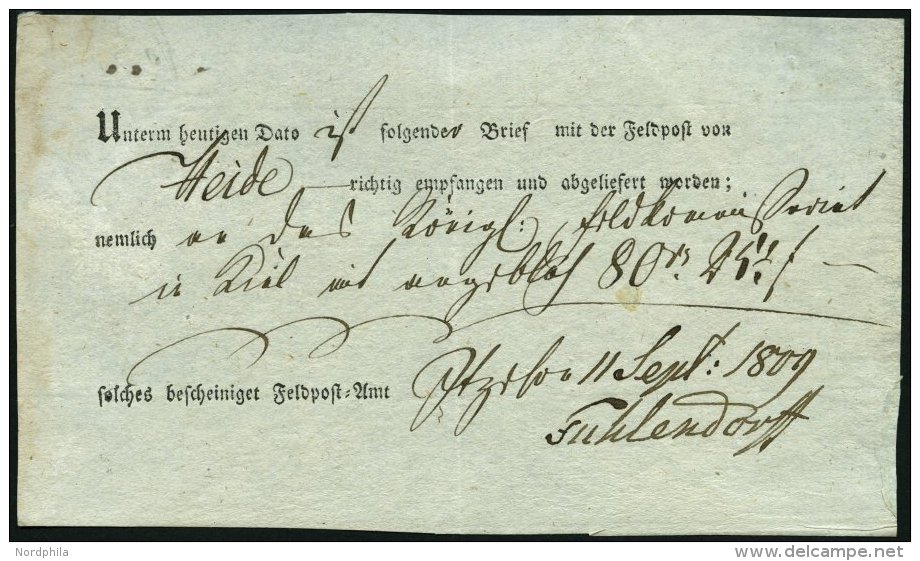 Unterm heutigen Dato ist folgender Brief mit der Feldpost von
Heide richtig empfangen und abgeliefert worden;
nemlich an das Königl: Feldkommissariat
in Kiel mit angeblich 80
solches bescheiniget Feldpost-Amt Itzehoe 11 Sept: 1809
Fuhlendorff
Nordphila
www.delcampe.net